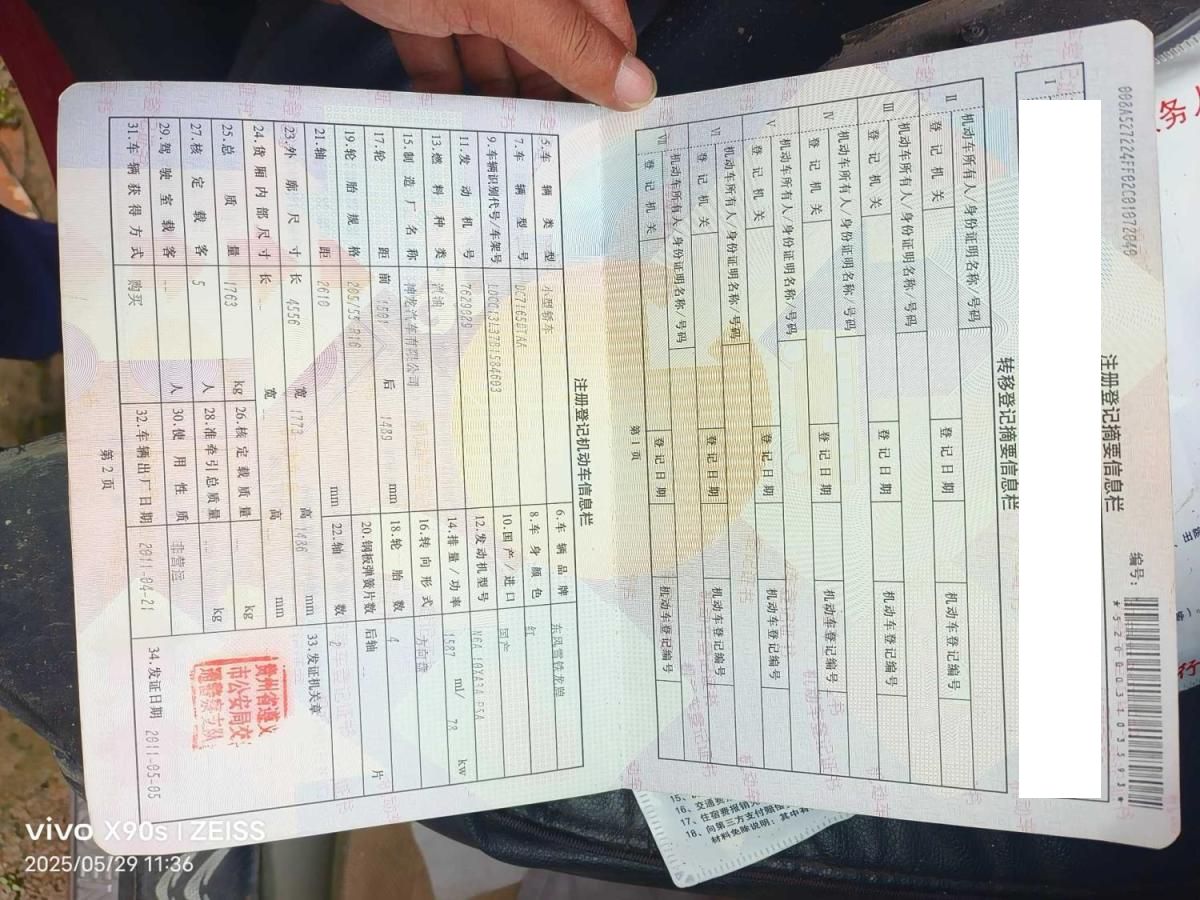 编号:
注册登记摘要信息栏
I
转移登记摘要信息栏
II 机动车所有人/身份证明名称/号码
登记机关 登记日期 机动车登记编号
III 机动车所有人/身份证明名称/号码
登记机关 登记日期 机动车登记编号
IV 机动车所有人/身份证明名称/号码
登记机关 登记日期 机动车登记编号
V 机动车所有人/身份证明名称/号码
登记机关 登记日期 机动车登记编号
VI 机动车所有人/身份证明名称/号码
登记机关 登记日期 机动车登记编号
VII 机动车所有人/身份证明名称/号码
登记机关 登记日期 机动车登记编号
第 1 页
注册登记机动车信息栏
5.车辆类型 小型轿车 6.车辆品牌 东风雪铁龙牌
7.车辆型号 DC7165DTAA 8.车身颜色 红
9.车辆识别代号/车架号 10.国产/进口 国产
11.发动机号 12.发动机型号 N6A 10XA3A PSA
13.燃料种类 汽油 14.排量/功率 1587 ml/ 78 kw
15.制造厂名称 神龙汽车有限公司 16.转向形式 方向盘
17.轮距 前 后 1489 mm 18.轮胎数 4
19.轮胎规格 205/55 R16 20.钢板弹簧片数 后轴 片
21.轴距 2610 mm 22.轴数 2
23.外廓尺寸 长 4556 宽 1773 高 1486 mm 33.发证机关章
24.货厢内部尺寸 长 -- 宽 -- 高 -- mm
25.总质量 1763 kg 26.核定载质量 -- kg
27.核定载客 5 人 28.准牵引总质量 -- kg
29.驾驶室载客 -- 人 30.使用性质 非营运
31.车辆获得方式 购买 32.车辆出厂日期 2011-04-21 34.发证日期 2011-05-05
贵州省遵义
市公安局交
通警察支队
第 2 页
16、交通费
17、住宿费报销
18、向第三方支付赔偿
材料免除说明:
vivo X90s | ZEISS
2025/05/29 11:36